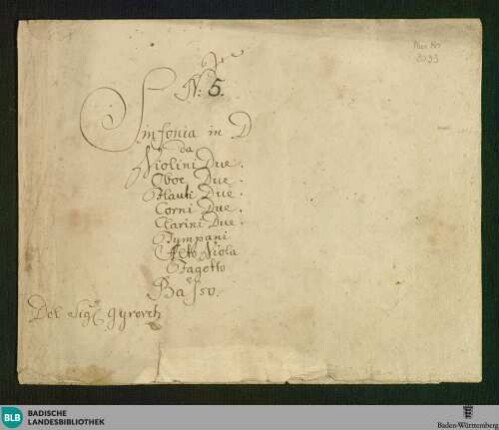 Mus. Hs.
N: 5.
Sinfonia in D
da
Violini Due.
Oboe Due.
Flauti Due.
Corni Due.
Clarini Due.
Tympani
Viola
Fagotto
e
Basso.
Del Sig: gyrovetz
BLB
BADISCHE
LANDESBIBLIOTHEK
Baden-Württemberg